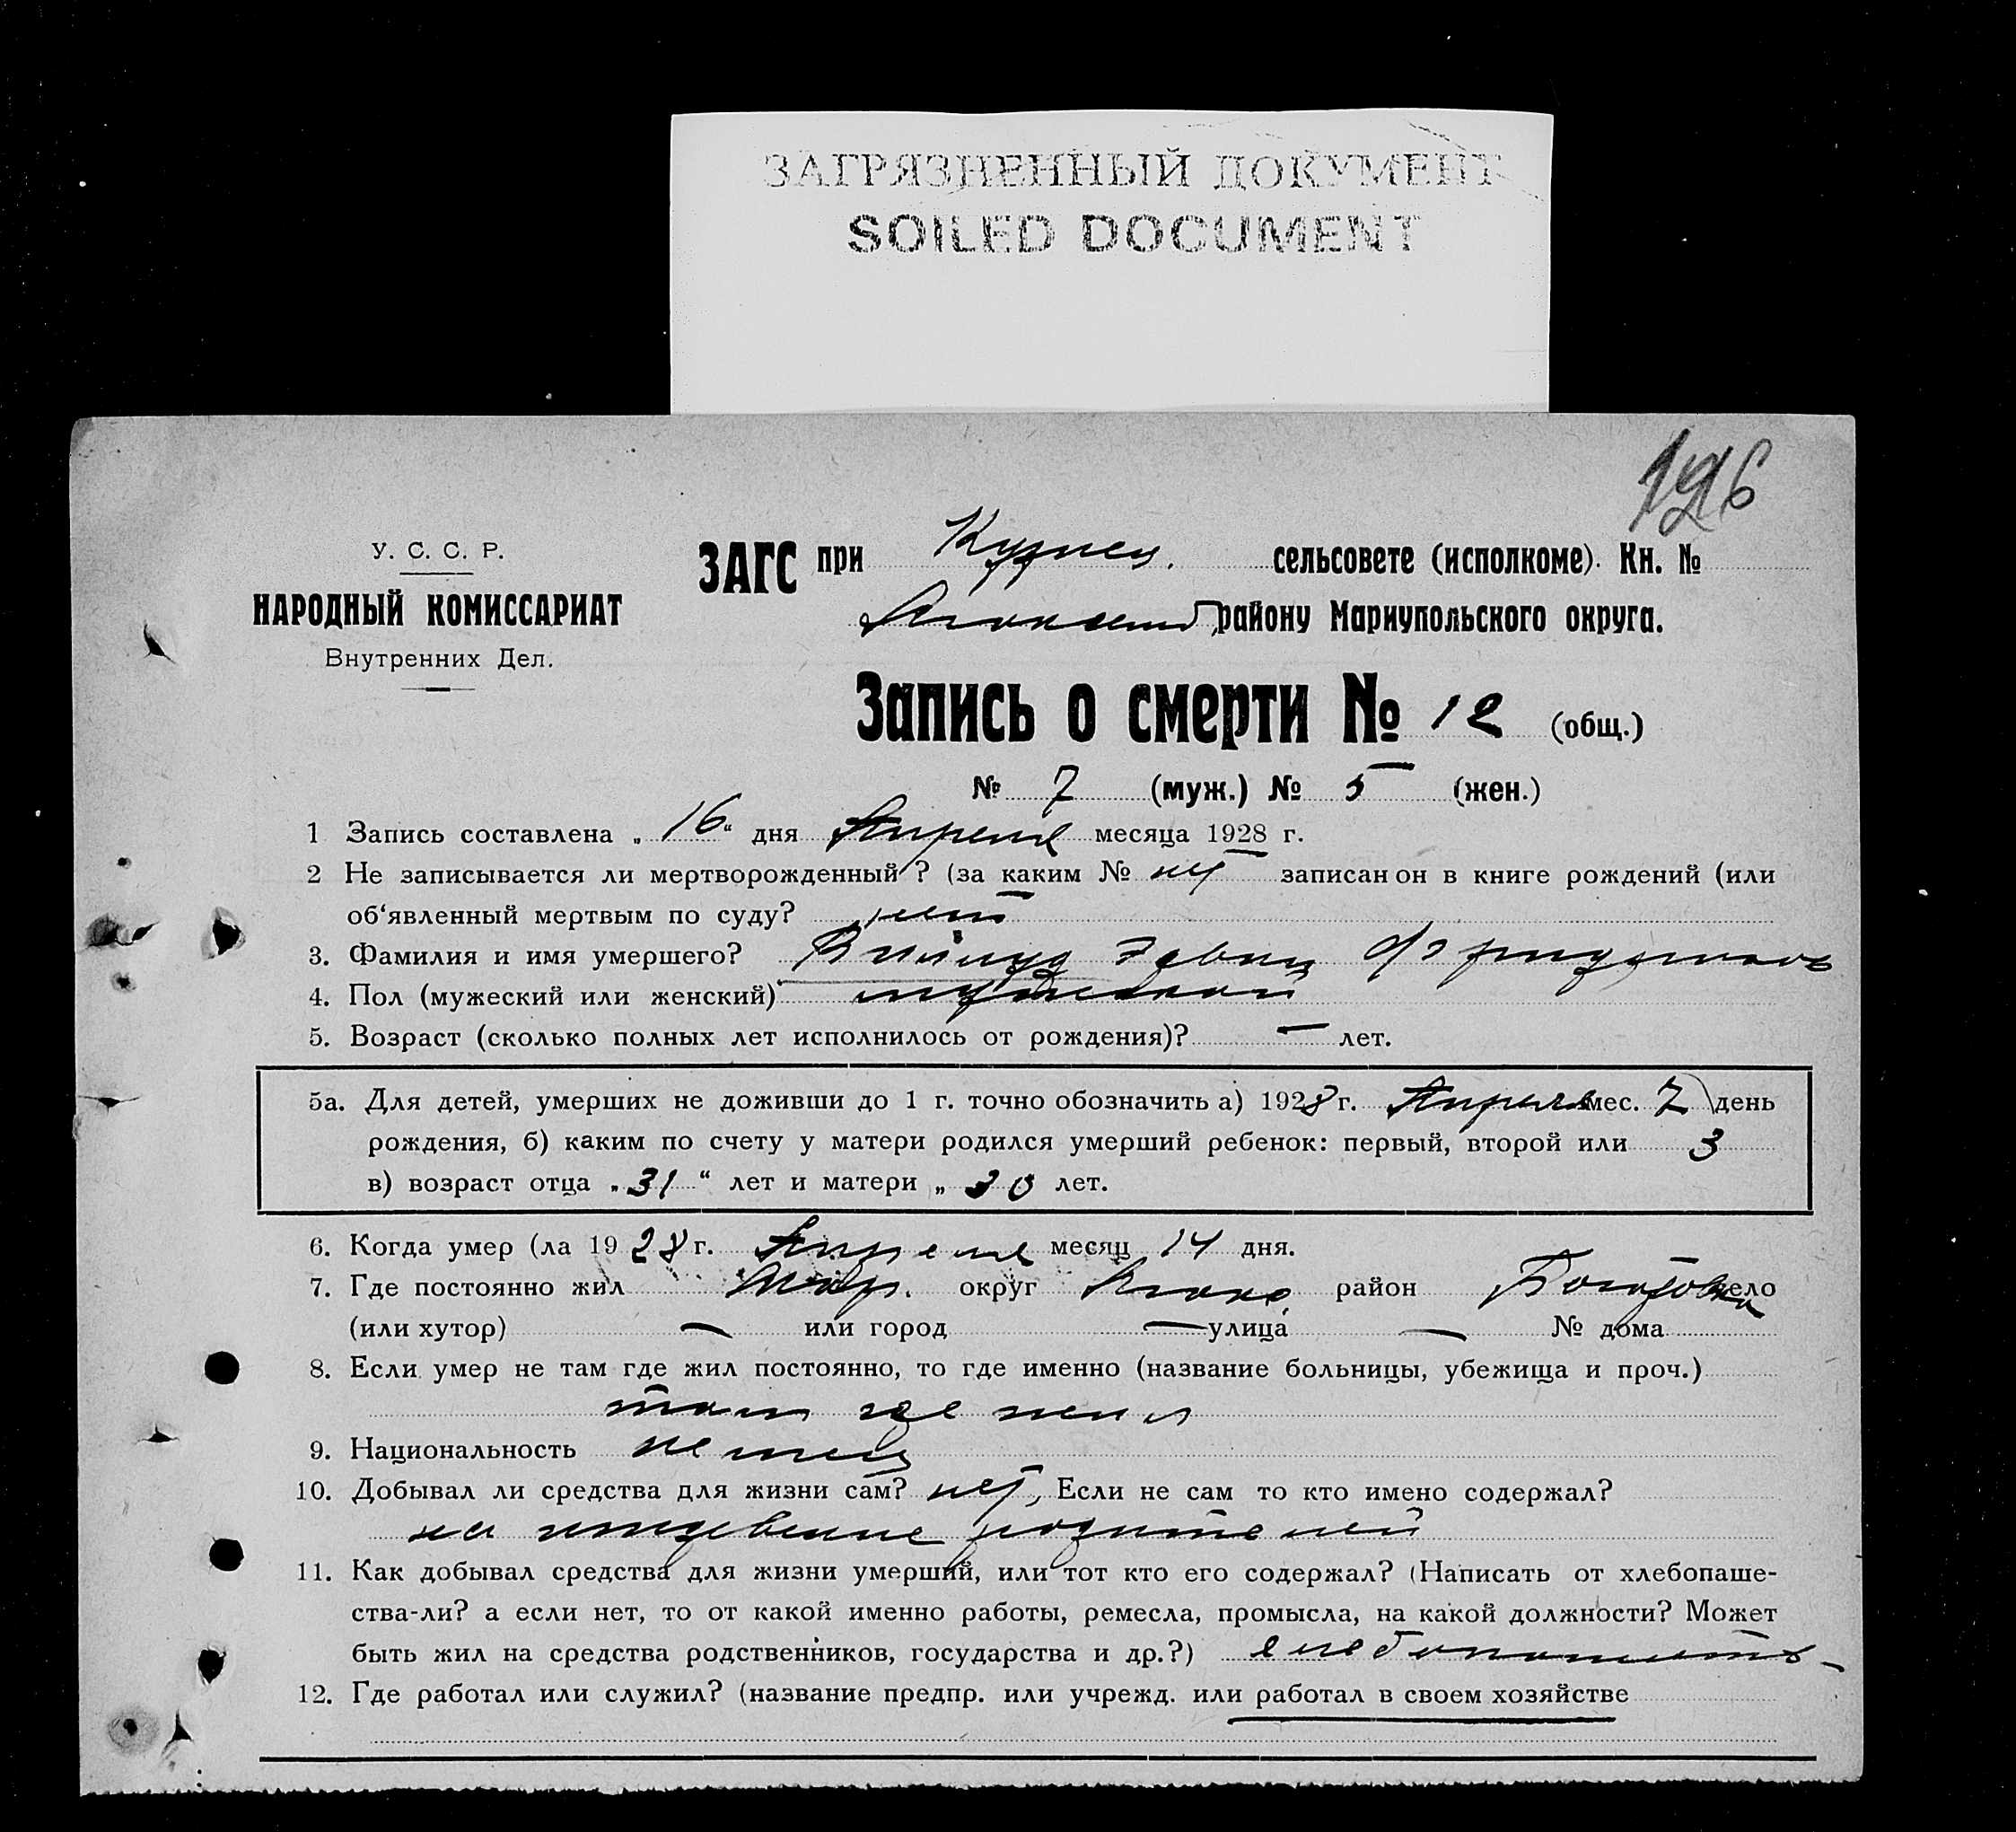 ЗАГРЯЗНЕННЫЙ ДОКУМЕНТ
SOILED DOCUMENT
196
У. С. С. Р.
НАРОДНЫЙ КОМИССАРИАТ
Внутренних Дел.
ЗАГС при сельсовете (исполкоме). Кн. №
району Мариупольского округа.
Запись о смерти № 12 (общ.)
№ 7 (муж.) № 5 (жен.)
1 Запись составлена „ 16 “ дня Апреля месяца 1928 г.
2 Не записывается ли мертворожденный? (за каким № нет записан он в книге рождений (или
об‘явленный мертвым по суду? нет
3. Фамилия и имя умершего?
4. Пол (мужеский или женский) мужской
5. Возраст (сколько полных лет исполнилось от рождения)? — лет.
5а. Для детей, умерших не доживши до 1 г. точно обозначить а) 1928 г. Апреля мес. 7 день
рождения, б) каким по счету у матери родился умерший ребенок: первый, второй или 3
в) возраст отца „ 31 “ лет и матери „ 30 лет.
6. Когда умер (ла 1928 г. Апреля месяц 14 дня.
7. Где постоянно жил Мар. округ район село
(или хутор) — или город — улица — № дома
8. Если умер не там где жил постоянно, то где именно (название больницы, убежища и проч.)
там где жил
9. Национальность немец
10. Добывал ли средства для жизни сам? нет, Если не сам то кто имено содержал?
на иждевение родителей
11. Как добывал средства для жизни умерший, или тот кто его содержал? (Написать от хлебопаше-
ства-ли? а если нет, то от какой именно работы, ремесла, промысла, на какой должности? Может
быть жил на средства родственников, государства и др.?)
12. Где работал или служил? (название предпр. или учрежд. или работал в своем хозяйстве